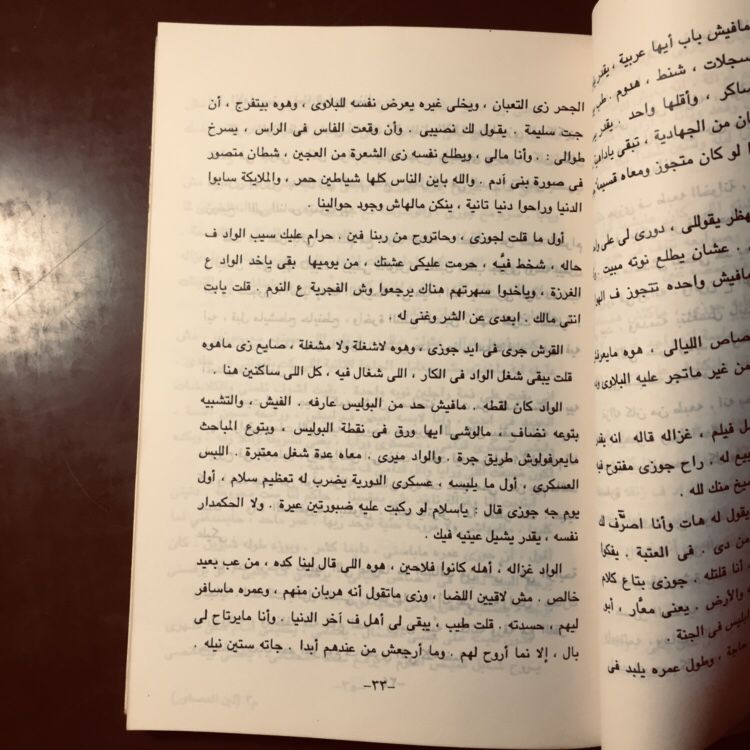 الجحر زى التعبان ، ويخلى غيره يعرض نفسه للبلاوى ، وهوه بيتفرج ، أن
جت سليمة . يقول لك نصيبى . وأن وقعت الفاس فى الراس ، يسرخ
طوالى : . وأنا مالى ، ويطلع نفسه زى الشعرة من العجين ، شطان متصور
فى صورة بنى آدم . والله باين الناس كلها شياطين حمر ، والملايكة سابوا
الدنيا وراحوا دنيا تانية ، ينكن مالهاش وجود حوالينا .
أول ما قلت لجوزى ، وحاتروح من ربنا فين . حرام عليك سيب الواد ف
حاله ، شخط فيَّه ، حرمت عليكى عشتك ، من يوميها بقى ياخد الواد ع
الفرزة ، وياخدوا سهرتهم هناك يرجعوا وش الفجرية ع النوم . قلت يابت
انتى مالك . ابعدى عن الشر وغنى له .
القرش جرى فى ايد جوزى ، وهوه لاشغلة ولا مشغلة ، صايع زى ماهوه
قلت يبقى شغل الواد فى الكار ، اللى شغال فيه ، كل اللى ساكنين هنا .
الواد كان لقطه . مافيش حد من البوليس عارفه . الفيش ، والتشبيه
بتوعه نضاف ، مالوشى ايها ورق فى نقطة البوليس ، وبتوع المباحث
مايعرفولوش طريق جرة . والواد ميرى . معاه عدة شغل معتبرة . اللبس
العسكرى ، أول ما يلبسه ، عسكرى الدورية يضرب له تعظيم سلام ، أول
يوم جه جوزى قال : ياسلام لو ركبت عليه ضبورتين عيرة . ولا الحكمدار
نفسه ، يقدر يشيل عينيه فيك .
الواد غزاله ، أهله كانوا فلاحين ، هوه اللى قال لينا كده ، من عب بعيد
خالص . مش لاقيين اللضا ، وزى ماتقول أنه هربان منهم ، وعمره ماسافر
ليهم ، حسدته . قلت طيب ، يبقى لى أهل ف آخر الدنيا . وأنا مايرتاح لى
بال ، إلا نما أروح لهم . وما أرجعش من عندهم أبدا . جاته ستين نيله .
-٣٣-
مافيش باب أيها عربية ، يقدر
سجلات ، شنط ، هدوم . طب
ساكر ، وأقلها واحد . يقدر
ان من الجهادية ، تبقى
ا لو كان متجوز ومعاه قسيمة
هظر يقوللى ، دورى لى على
. عشان يطلع نوته مبيت
مافيش واحده تتجوز ف
صاص الليالى ، هوه
من غير ماتجر عليه البلاوى
ل فيلم ، غزاله قاله انه
بيع له ، راح جوزى مفتوح
شيخ منك لله .
يقول له هات وأنا اصرَّف لك
من دى . فى العتبة .
، أنا قلتله . جوزى بتاع كلام
والأرض . يعنى معاَّر ،
البوليس فى الجنة .
حاجة ، وطول عمره يلبد فى